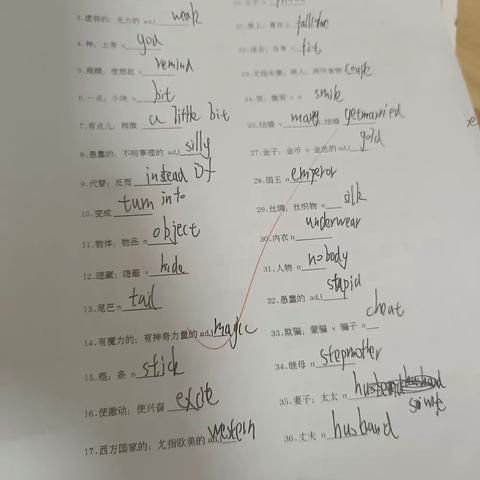 3.虚弱的；无力的 adj. weak
4.神；上帝 n. god
5.提醒；使想起 v. remind
6.一点；小块 n. bit
7.有点儿；稍微 a little bit
8.愚蠢的；不明事理的 adj. silly
9.代替；反而 instead of
10.变成 turn into
11.物体；物品 n. object
12.隐藏；隐蔽 v. hide
13.尾巴 n. tail
14.有魔力的；有神奇力量的 adj. magic
15.棍；条 n. stick
16.使激动；使兴奋 excite
17.西方国家的；尤指欧美的 adj. western
21.爱上；喜欢上 fall
22.适合；合身 v. fit
23.尤指夫妻；两人；两件事物 couple
24.笑；微笑 v. n. smile
25.结婚 v. marry 结婚 get married
27.金子；金币 n. 金色的 adj. gold
28.国王 n. emperor
29.丝绸；丝织物 n. silk
30.内衣 n. underwear
31.人物 n. nobody
32.愚蠢的 adj. stupid
33.欺骗；蒙骗 v. 骗子 n. cheat
34.继母 n. stepmother
35.妻子；太太 n. wife
36.丈夫 n. husband